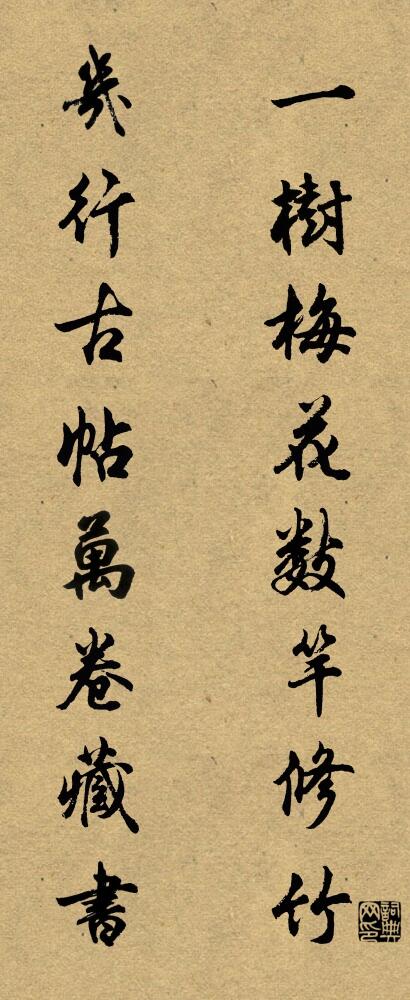 一樹梅花數竿修竹
幾行古帖萬卷藏書
詞典网印